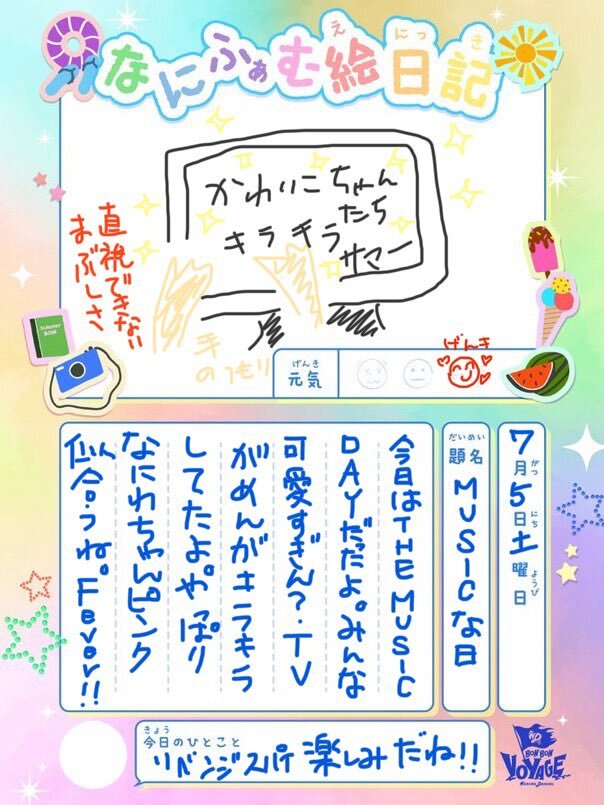 なにふぁむ絵日記
え
にっ
き
かわいこちゃん
たち
キラキラ
サマー
直視できない
まぶしさ
手
のつもり
Summer
BOOK
げんき
元気
げんき
7月5日土曜日
がつ
にち
ようび
だいめい
題名
MUSICな日
今日はTHE MUSIC
DAYだったよ。みんな
可愛すぎん?・TV
がめんがキラキラ
してたよやっぱり
なにわちゃんピンク
似合うね。Fever!!
きょう
今日のひとこと
リベンジスパイ楽しみだね!!
BON BON
VOYAGE